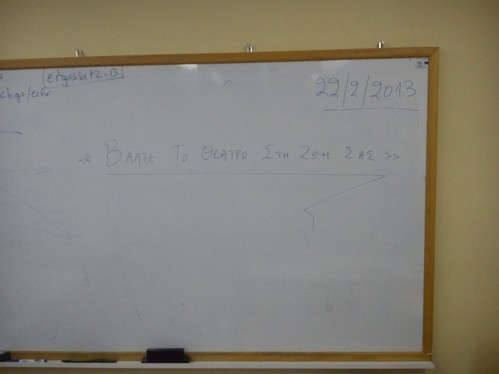 ergasia12-B
22/2/2013
« ΒΑΛΤΕ ΤΟ ΘΕΑΤΡΟ ΣΤΗ ΖΩΗ ΣΑΣ »